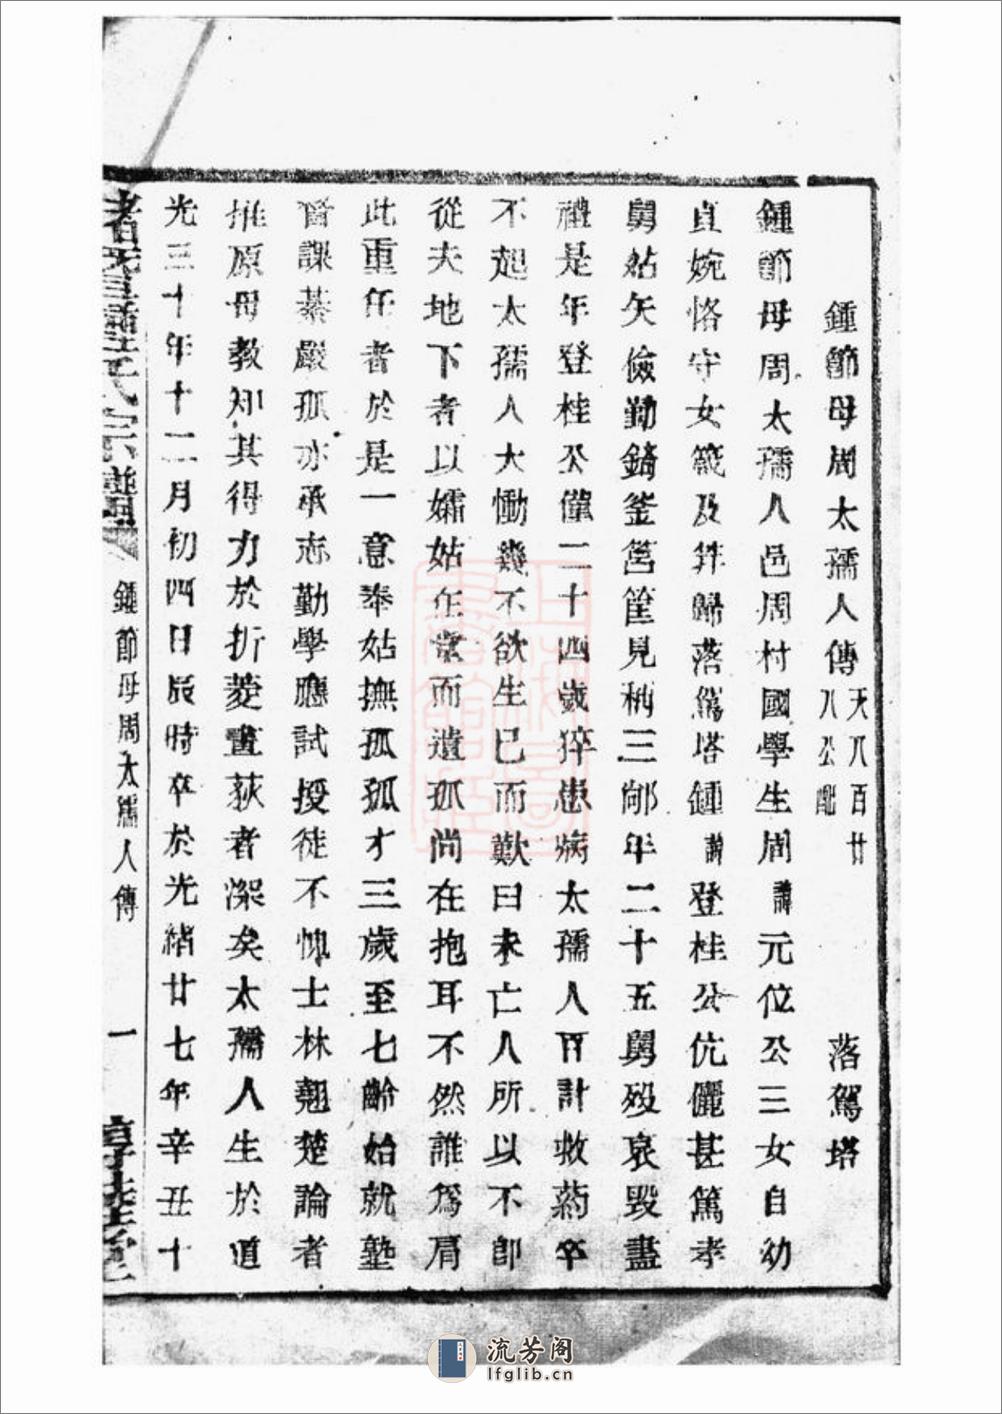 鍾節母周太孺人傳 天八百廿八公配 落駕塔
鍾節母周太孺人邑周村國學生周諱元位公三女自幼
貞婉恪守女箴及笄歸落駕塔鍾諱登桂公伉儷甚篤孝
舅姑矢儉勤錡釜筥筐見稱三鄉年二十五舅歿哀毀盡
禮是年登桂公僅二十四歲猝患病太孺人百計救葯卒
不起太孺人大慟幾不欲生已而歎曰未亡人所以不即
從夫地下者以孀姑在堂而遺孤尚在抱耳不然誰爲肩
此重任者於是一意奉姑撫孤孤才三歲至七齡始就塾
督課綦嚴孤亦承志勤學應試授徒不愧士林翹楚論者
推原母教知其得力於折菱畫荻者深矣太孺人生於道
光三十年十二月初四日辰時卒於光緒廿七年辛丑十
鍾氏宗譜 鍾節母周太孺人傳 一
流芳阁
lfglib.cn